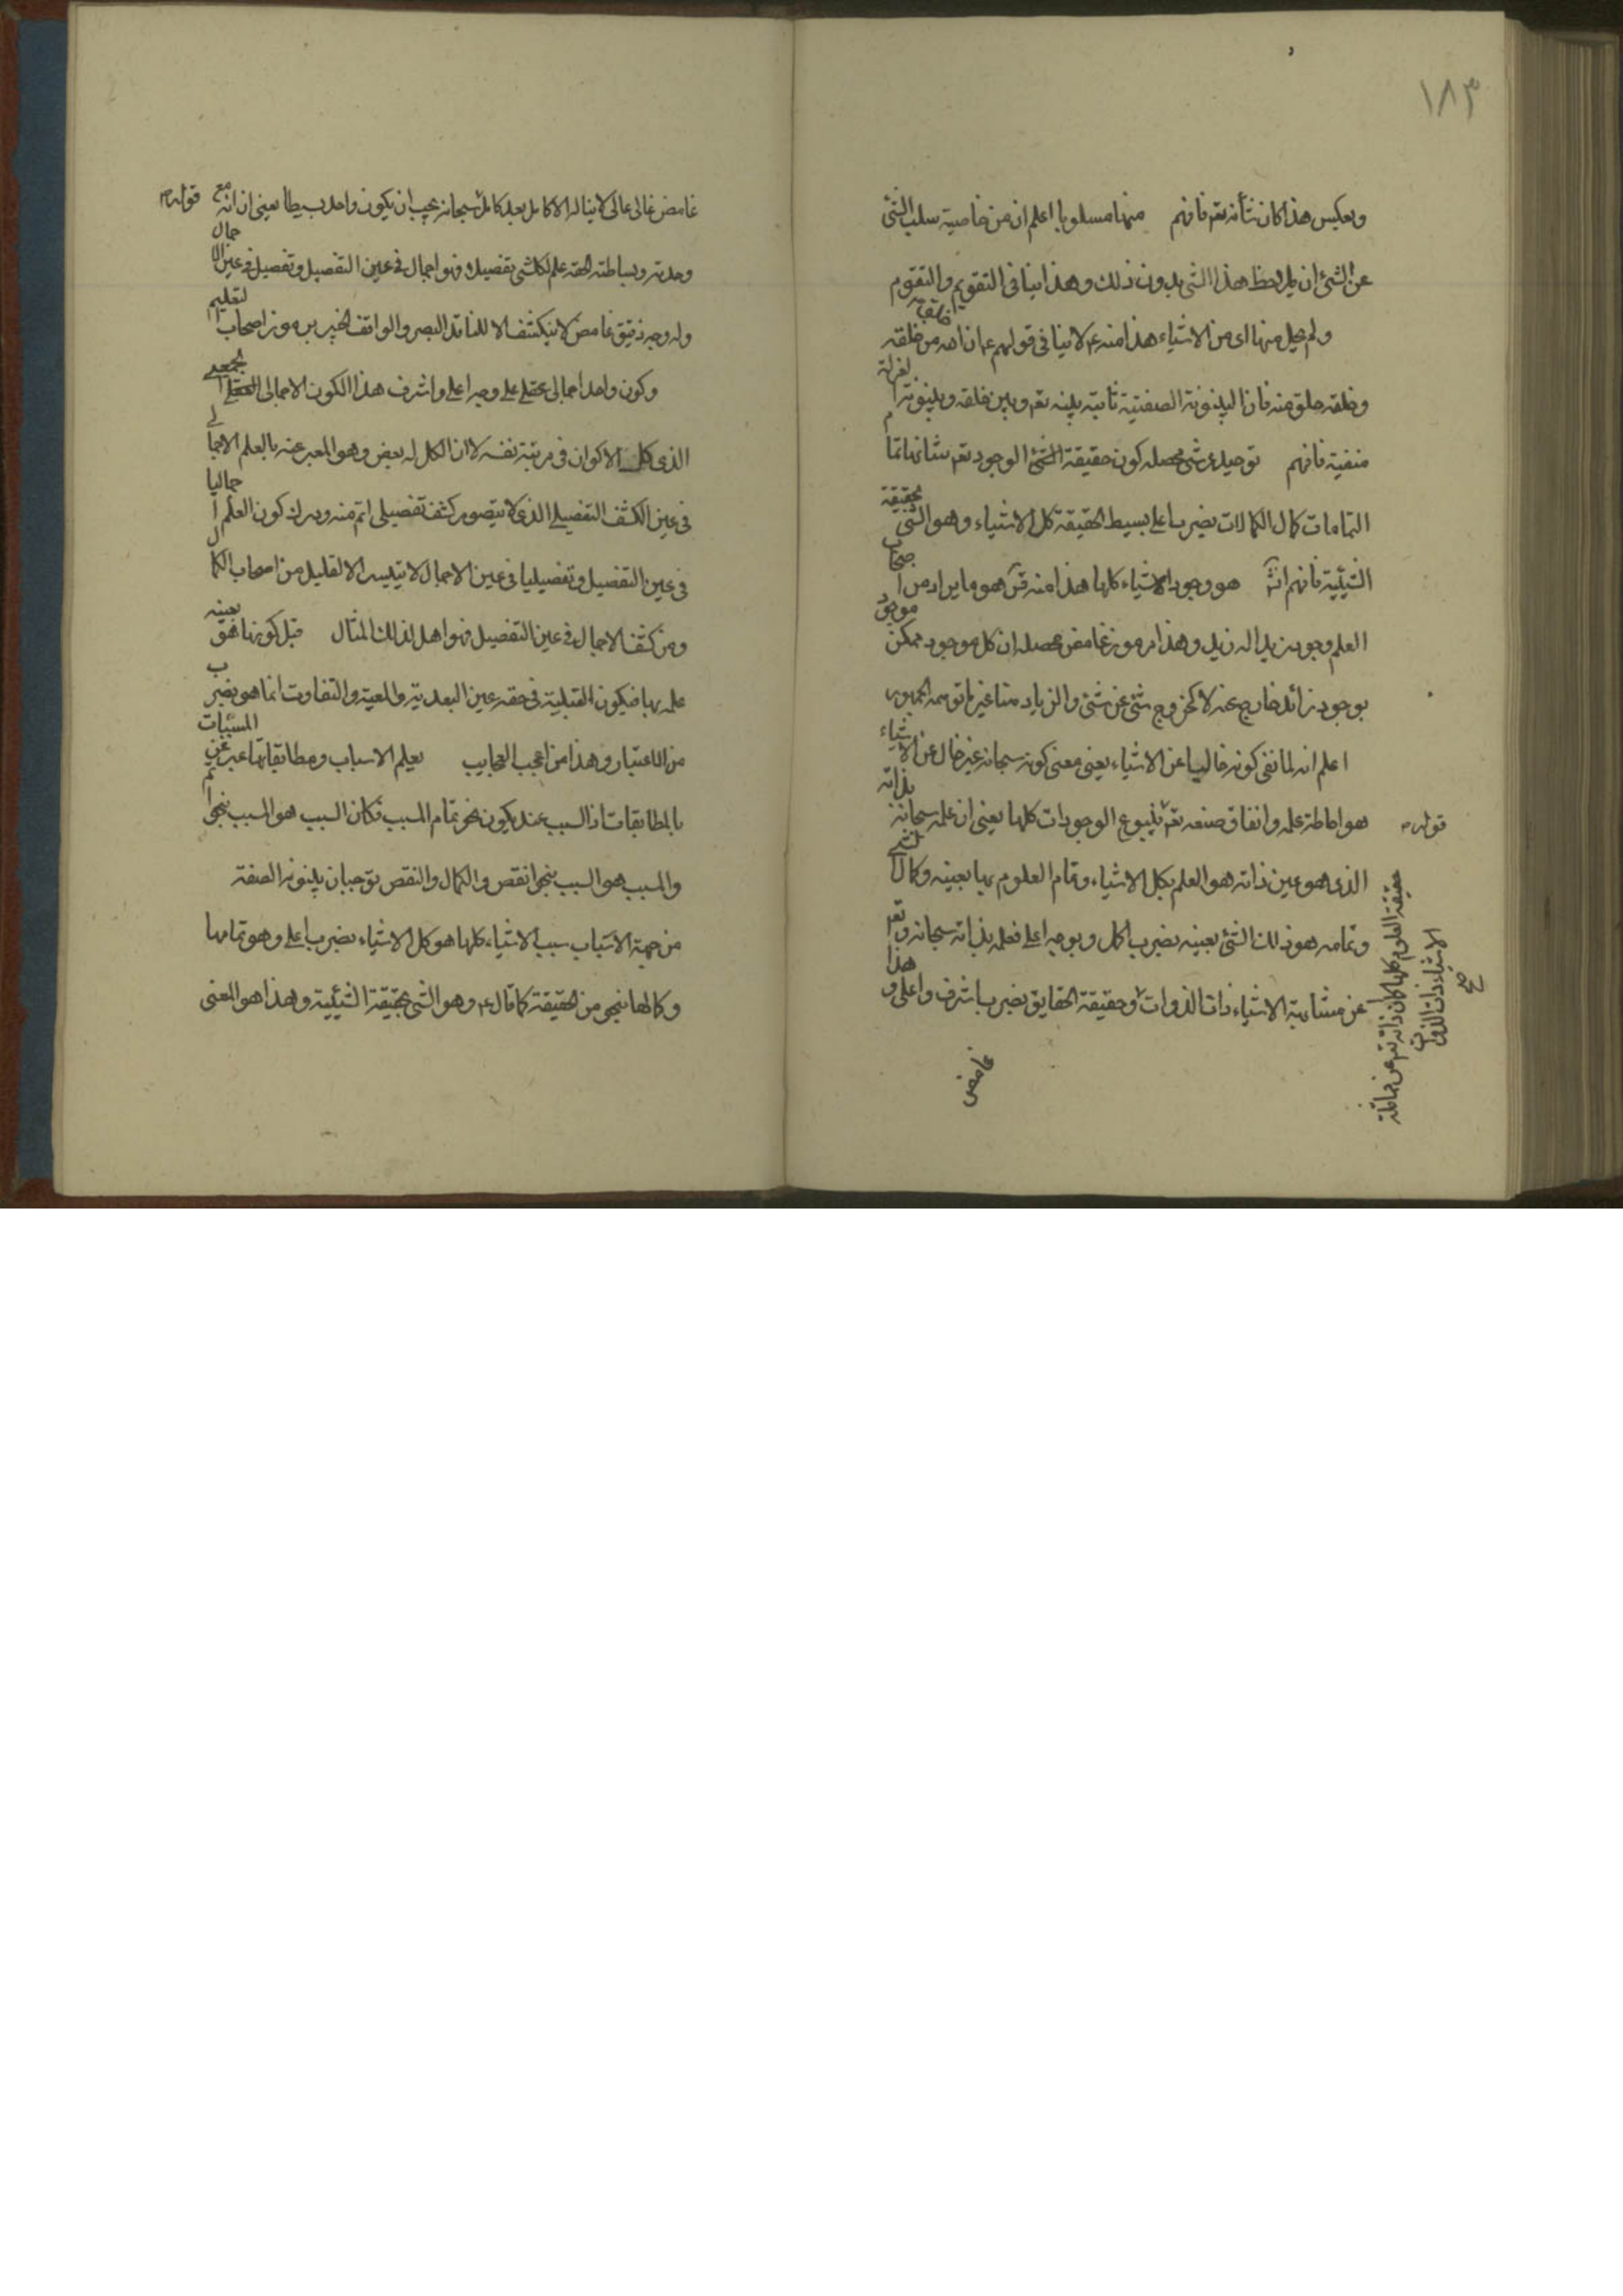 ١٨٣
وبعكس هذا كان شأنه تعم فافهم منها مسلوبا اعلم ان من خاصية سلب الشئ
عن الشئ ان يلاحظ هذا الشئ بدون ذلك وهذا ينافى التقويم والتقوم
ولم يخل منها اى من الاشياء هذا منه ع لا ينافى قولهم ع ان الله من خلقه
وخلقه خلق منه فان البينونة الصفتية ثابتة بينه تعم وبين خلقه وبينونة العزلة
منفية فافهم توحيد عرشى محصله كون حقيقة الشئ الوجود تعم شانه تمام
التمامات كمال الكمالات بضرب اعلى بسيط الحقيقة كل الاشياء وهو الشئ بحقيقة
الشيئية فافهم انش هو وجود الاشياء كلها هذا منه قس هو ما يراد من اصحاب
العلم وجود زيد اله زيد وهذا مرموز غامض محصله ان كل موجود ممكن موجود
بوجود زائد خارج عنه لا كخروج شئ عن شئ والزيادة هنا غير ما توهمه الجمهور
اعلم انه لما نفى كونه خاليا عن الاشياء يعنى معنى كونه سبحانه غير خال عن الاشياء
قوله هو احاطة علمه وانفاق صنعه تعم ينبوع الوجودات كلها يعنى ان علمه سبحانه بذاته
الذى هو عين ذاته هو العلم بكل الاشياء وتمام العلوم بها بعينه وكمال الشئ
وتمامه هو ذلك الشئ بعينه بضرب اكمل وبوجه اعلى فعلمه بذاته سبحانه وتعم
عن مشابهة الاشياء ذات الذوات وحقيقة الحقايق بضرب اشرف واعلى وهذا
حقيقة العلوم كلها كما ان ذاته تعم عن مماثلة
الاشياء ذات الذوات
صح
غامض
غامض عالى عالى لا يناله الا كامل بعد كامل سبحانه يجب ان يكون واحد بسيطا يعنى ان انه مع قوله
وحدته وبساطته الحقه علم لكل شئ تفصيلا فهو اجمال فى عين التفصيل وتفصيل فى عين الاجمال
وله وجه دقيق غامض لا ينكشف الا للناقد البصر والواقف الخبير برموز اصحاب التعليم
وكون واحد اجمالى عقلى على وجه اعلى واشرف هذا الكون الاجمالى الجمعى
الذى كل الاكوان فى مرتبة نفسه لا ان الكل له بعض وهو المعبر عنه بالعلم الاجمالى
فى عين الكشف التفصيلى الذى لا يتصور كشف تفصيلى اتم منه ودرك كون العلم اجماليا
فى عين التفصيل وتفصيليا فى عين الاجمال لا يتيسر الا لقليل من اصحاب الكمال
ومن كشف الاجمال فى عين التفصيل فهو اهل لذلك المثال قبل كونها هو بعينه
علمه بها فيكون القبلية فى حقه عين البعدية والمعية والتفاوت انما هو بضرب
من الاعتبار وهذا من اعجب العجايب بعلم الاسباب ومطابقاتها عبر عن المسببات
بالمطابقات اذ السبب عند يكون نحو تمام المسبب فكان السبب هو المسبب بنحو اتم
والمسبب هو السبب بنحو انقص والكمال والنقص يوجبان بينونة الصفة
من جهة الاسباب سبب الاشياء كلها هو كل الاشياء بضرب اعلى وهو تمامها
وكمالها بنحو من الحقيقة كما قال ع وهو الشئ بحقيقة الشيئية وهذا هو المعنى